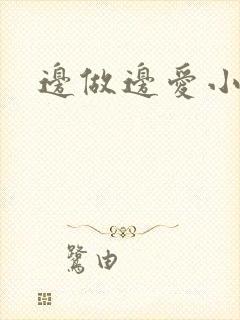 邊做邊愛小
鷺由